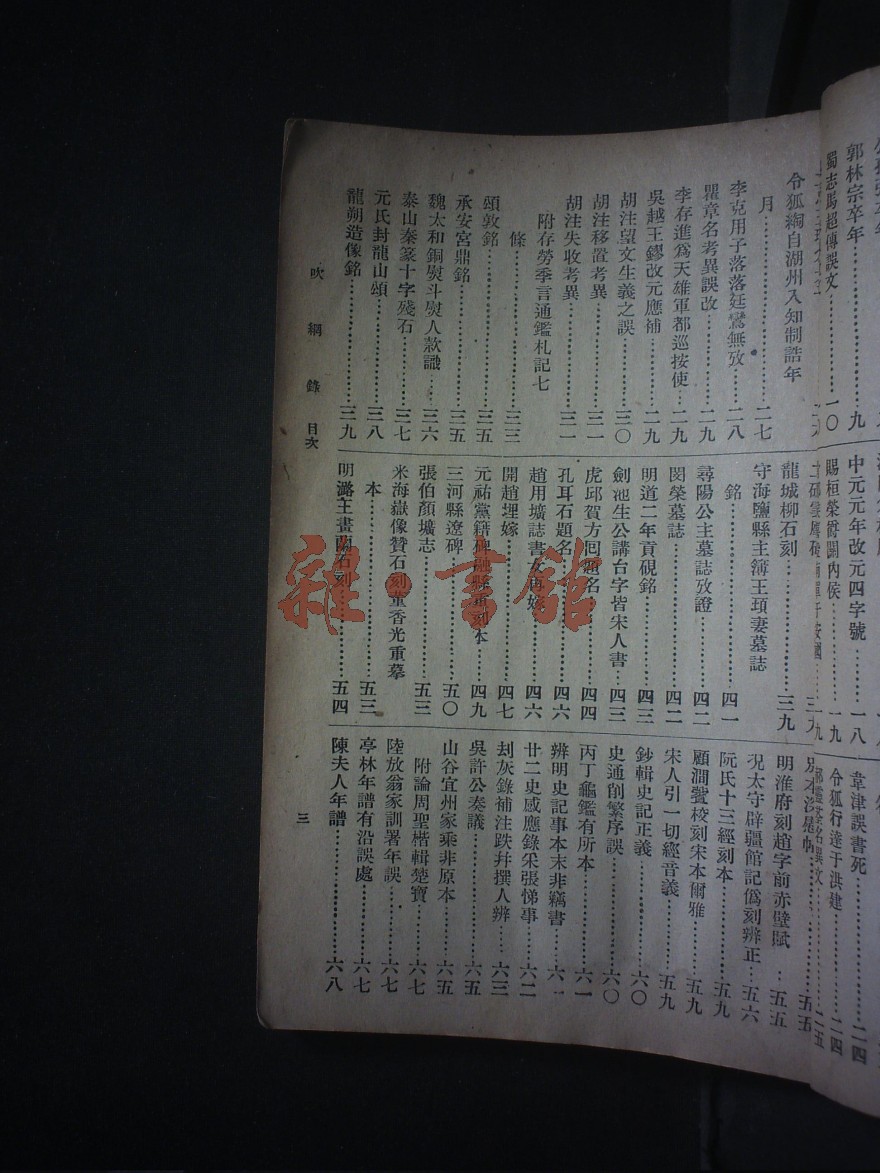 郭林宗卒年……九
蜀志馬超傳誤文……一〇
中元元年改元四字號……一八
賜桓榮爵關內侯……一九
韋津誤書死……二四
令狐行達于洪建……二四
令狐綯自湖州入知制誥年
月……二七
李克用子落落廷鸞無攷……二八
瞿章名考異誤改……二九
李存進爲天雄軍都巡按使……二九
吳越王鏐改元應補……二九
胡注望文生義之誤……三〇
胡注移置考異……三一
胡注失收考異……三一
附存勞季言通鑑札記七
條……三三
頌敦銘……三五
承安宮鼎銘……三五
魏太和銅熨斗熨人款識……三六
泰山秦篆十字殘石……三七
元氏封龍山頌……三八
龍朔造像銘……三九
龍城柳石刻……三九
守海鹽縣主簿王頊妻墓誌
銘……四一
尋陽公主墓誌攷證……四二
閔榮墓誌……四二
明道二年貢硯銘……四三
劍池生公講台字皆宋人書……四三
虎邱賀方回題名……四四
孔耳石題名……四六
趙用壙誌書女再嫁……四六
開趙埋嫁……四七
元祐黨籍碑融縣重刻本……四九
三河縣遼碑……五〇
張伯顏壙志……五三
米海嶽像贊石刻董香光重摹
本……五三
明潞王畫蘭石刻……五四
明淮府刻趙字前赤壁賦……五五
況太守辟疆館記僞刻辨正……五六
阮氏十三經刻本……五九
顧澗薲校刻宋本爾雅……五九
宋人引一切經音義……五九
鈔輯史記正義……六〇
史通削繁序誤……六〇
丙丁龜鑑有所本……六一
辨明史記事本末非竊書……六一
廿二史感應錄采張悌事……六二
刦灰錄補注跌幷撰人辨……六三
吳許公奏議……六五
山谷宜州家乘非原本……六五
附論周聖楷輯楚寶……六七
陸放翁家訓署年誤……六七
亭林年譜有沿誤處……六七
陳夫人年譜……六八
吹網錄 目次
三
雜·書館